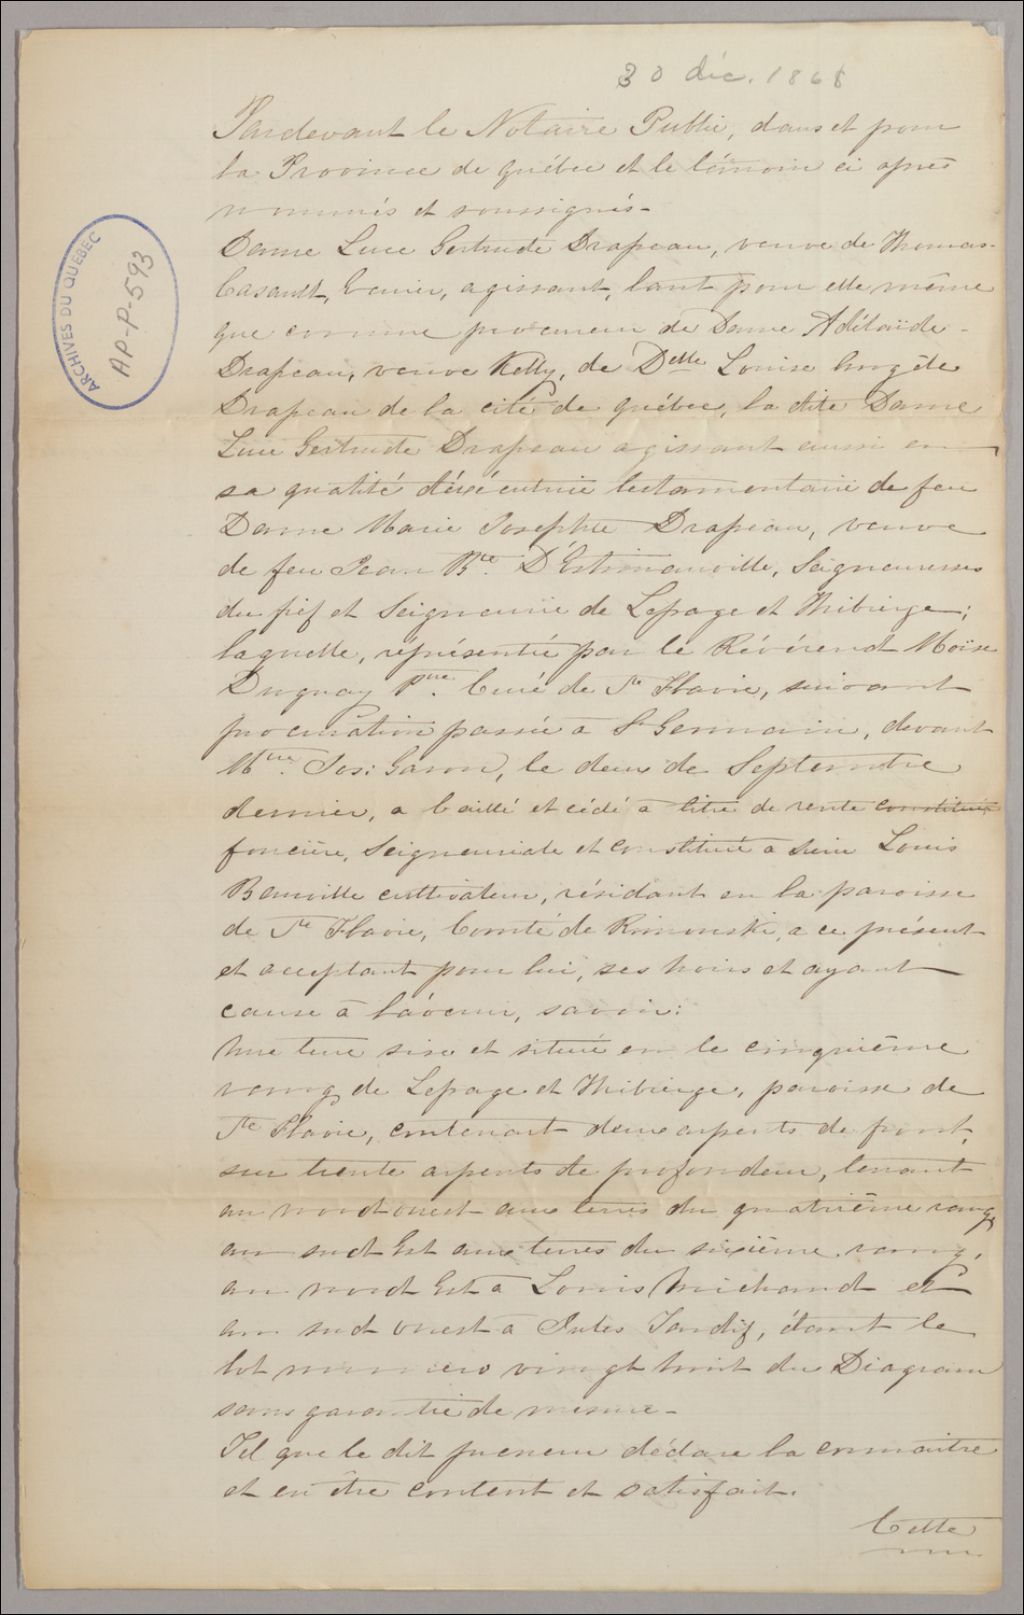 30 déc. 1868
ARCHIVES DU QUÉBEC
AP-P-593
Pardevant le Notaire Public, dans et pour
la Province de Québec et le témoin ci après
nommés et soussignés-
Dame Luce Gertrude Drapeau, veuve de Thomas
Casault, Ecuier, agissant, tant pour elle même
que comme procureur de Dame Adélaïde
Drapeau, veuve Kelly, de Delle Louise Angèle
Drapeau de la cité de Québec, la dite Dame
Luce Gertrude Drapeau agissant aussi en
sa qualité d'éxécutrice testamentaire de feu
Dame Marie Josephte Drapeau, veuve
de feu Jean Bte. D'Estimauville, Seigneuresses
du fief et Seigneurie de Lepage et Thibierge;
laquelle, réprésentée par le Révérend Moïse
Duguay Ptre. Curé de Ste Flavie, suivant
procuration passée à St Germain, devant
Mtre. Jos: Garon, le deux de Septembre
dernier, a baillé et cédé à titre de rente constituée
foncière, Seigneuriale et constituée à Louis
Banville cultivateur, résidant en la paroisse
de Ste Flavie, Comté de Rimouski, a ce présent
et acceptant pour lui, ses hoirs et ayant
cause à l'avenir, savoir:
Une terre sise et située en le cinquième
rang de Lepage et Thibierge, paroisse de
Ste Flavie, contenant deux arpents de front,
sur trente arpents de profondeur, tenant
au nord ouest aux terres du quatrième rang,
au sud Est aux terres du sixième rang,
au nord Est à Louis Michaud et
au sud ouest à Jules Tardif, étant le
lot numéro vingt huit du Diagram
sans garantie de mesure-
Tel que le dit preneur déclare la connaitre
et en être content et satisfait.
Cette